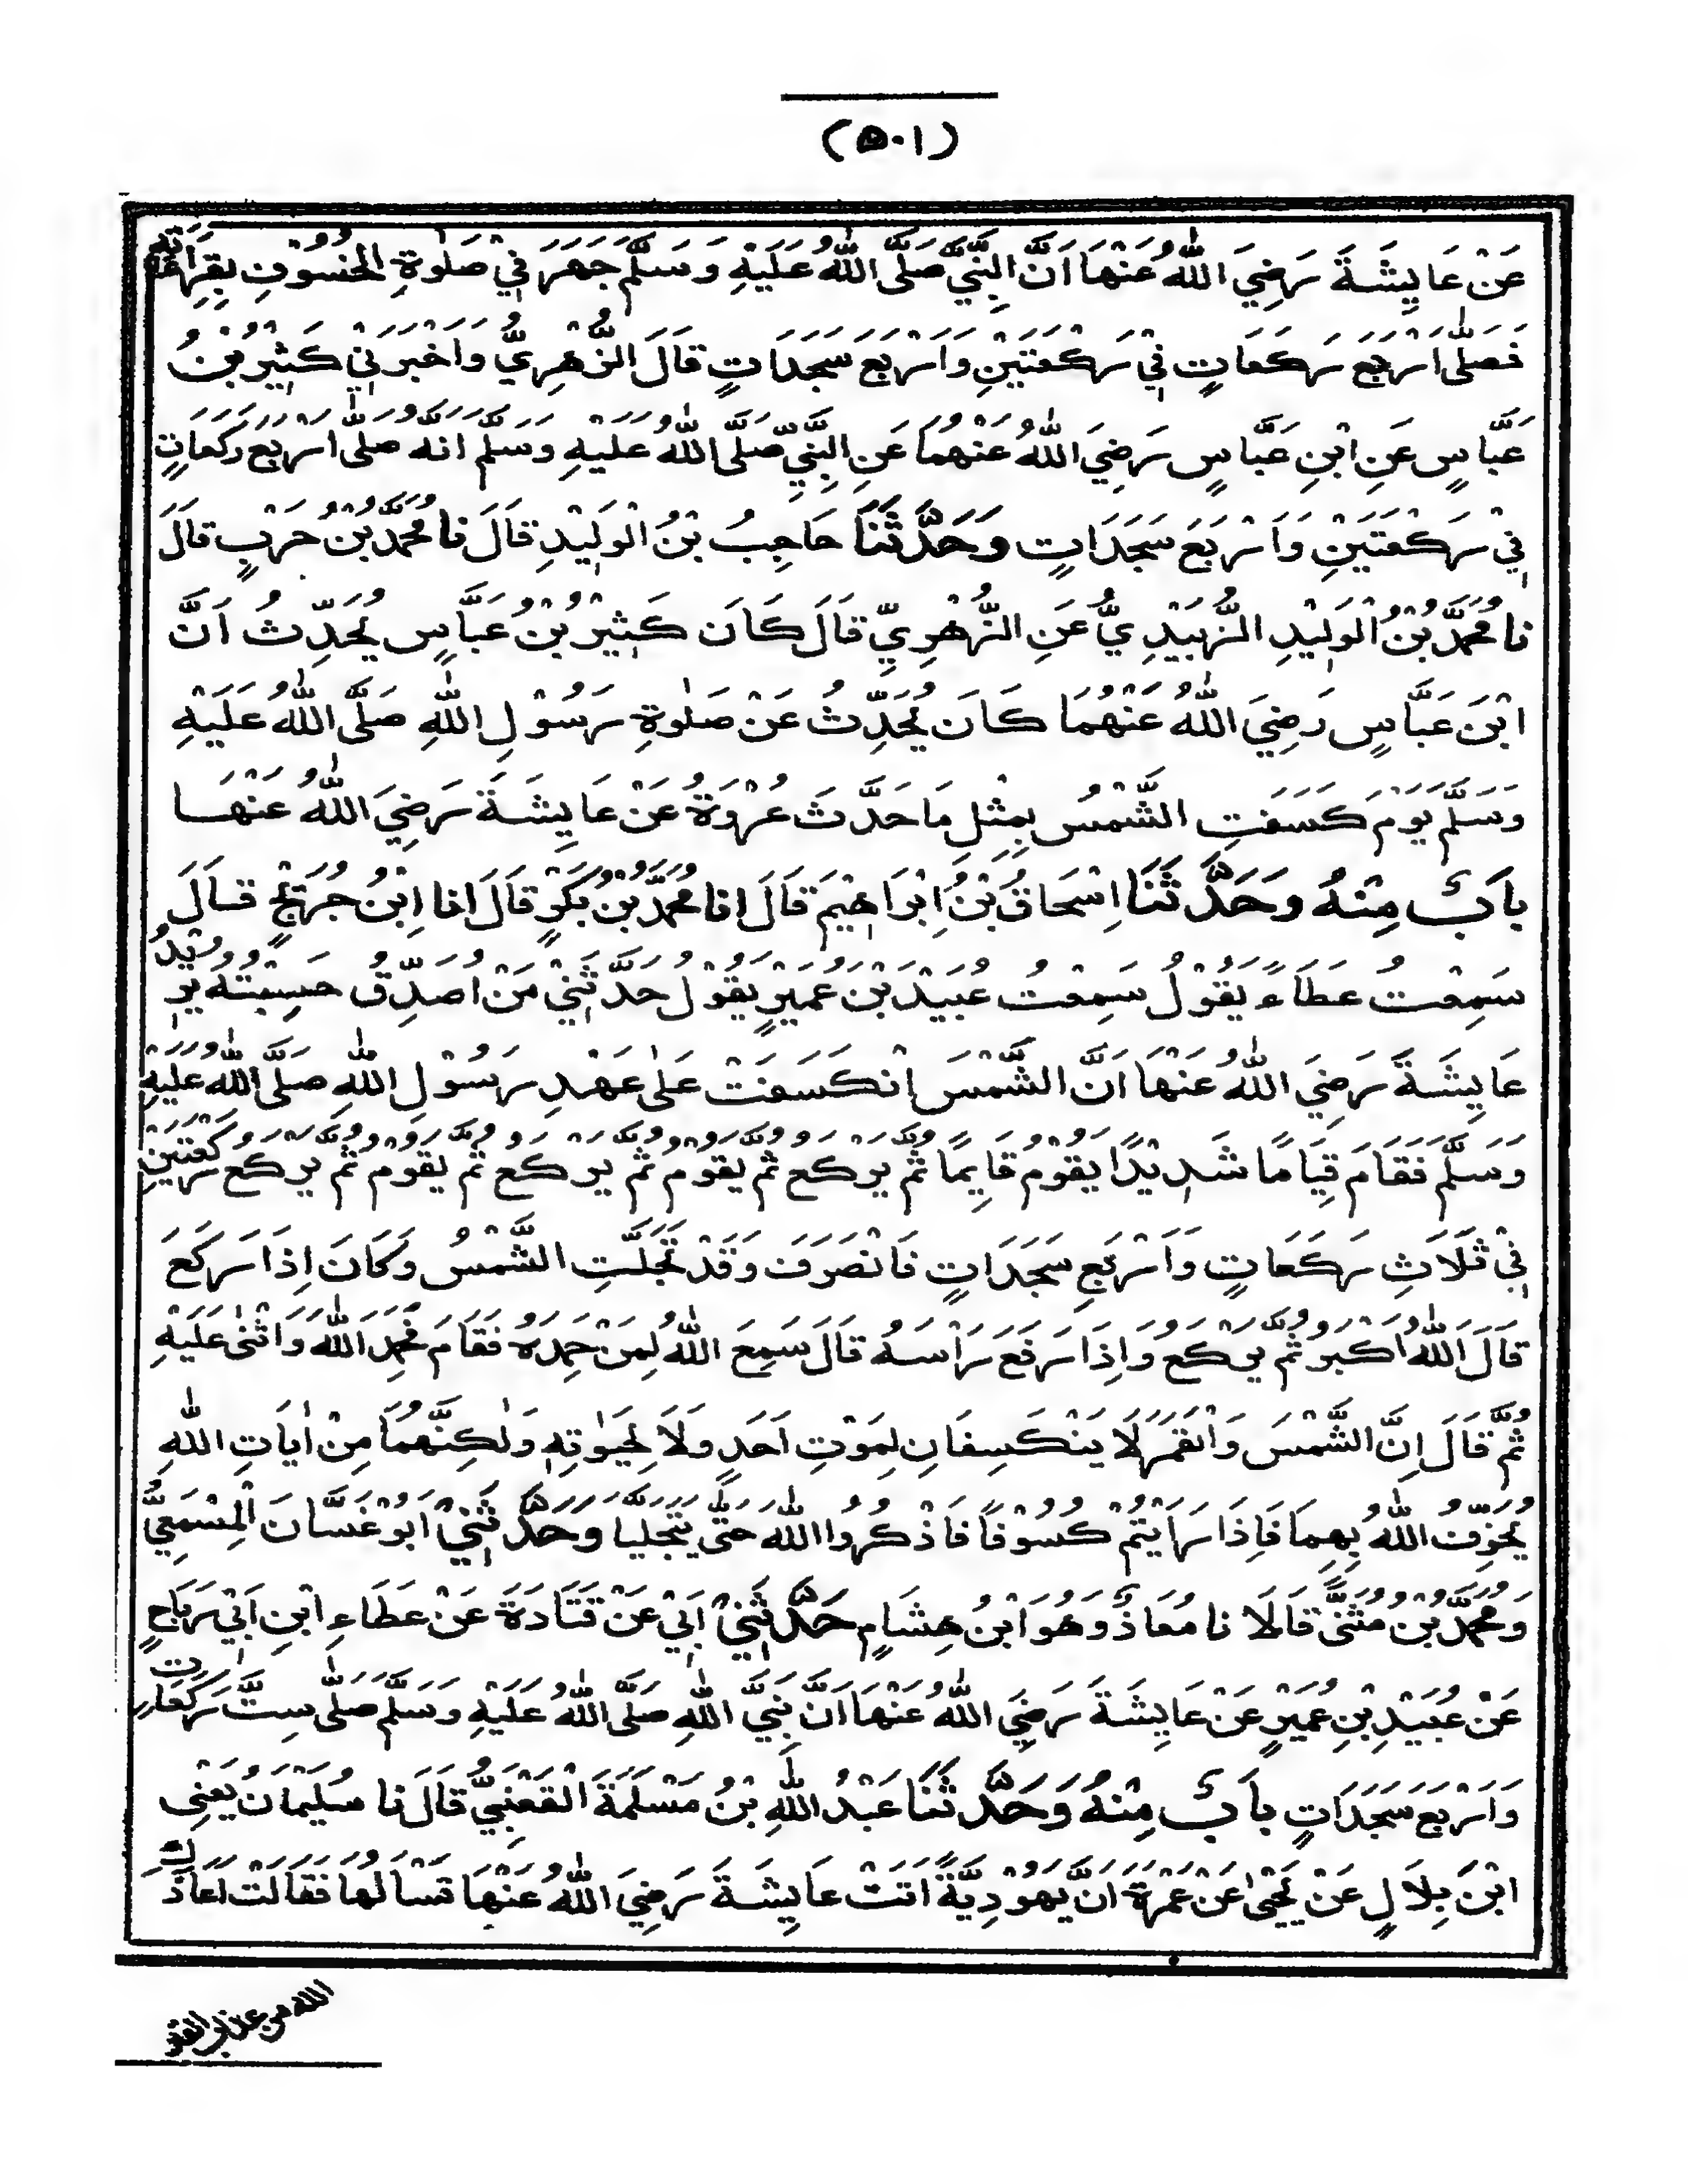 (٥٠١)
عَنْ عَايِشَةَ رَضِيَ اللّٰهُ عَنْهَا اَنَّ النَّبِيَّ صَلَّى اللّٰهُ عَلَيْهِ وَسَلَّمَ جَهَرَ فِيْ صَلٰوةِ الْخُسُوْفِ بِقِرَاءَتِهٖ
فَصَلّٰى اَرْبَعَ رَكَعَاتٍ فِيْ رَكْعَتَيْنِ وَاَرْبَعَ سَجَدَاتٍ قَالَ الزُّهْرِيُّ وَاَخْبَرَنِيْ كَثِيْرُ بْنُ
عَبَّاسٍ عَنِ ابْنِ عَبَّاسٍ رَضِيَ اللّٰهُ عَنْهُمَا عَنِ النَّبِيِّ صَلَّى اللّٰهُ عَلَيْهِ وَسَلَّمَ اَنَّهُ صَلّٰى اَرْبَعَ رَكَعَاتٍ
فِيْ رَكْعَتَيْنِ وَاَرْبَعَ سَجَدَاتٍ وَحَدَّثَنَا حَاجِبُ بْنُ الْوَلِيْدِ قَالَ نا مُحَمَّدُ بْنُ حَرْبٍ قَالَ
نا مُحَمَّدُ بْنُ الْوَلِيْدِ الزُّبَيْدِيُّ عَنِ الزُّهْرِيِّ قَالَ كَانَ كَثِيْرُ بْنُ عَبَّاسٍ يُحَدِّثُ اَنَّ
ابْنَ عَبَّاسٍ رَضِيَ اللّٰهُ عَنْهُمَا كَانَ يُحَدِّثُ عَنْ صَلٰوةِ رَسُوْلِ اللّٰهِ صَلَّى اللّٰهُ عَلَيْهِ
وَسَلَّمَ يَوْمَ كَسَفَتِ الشَّمْسُ بِمِثْلِ مَا حَدَّثَ عُرْوَةُ عَنْ عَايِشَةَ رَضِيَ اللّٰهُ عَنْهَا
بَابٌ مِنْهُ وَحَدَّثَنَا اِسْحَاقُ بْنُ اِبْرَاهِيْمَ قَالَ انا مُحَمَّدُ بْنُ بَكْرٍ قَالَ انا ابْنُ جُرَيْجٍ قَالَ
سَمِعْتُ عَطَاءً يَقُوْلُ سَمِعْتُ عُبَيْدَ بْنَ عُمَيْرٍ يَقُوْلُ حَدَّثَنِيْ مَنْ اُصَدِّقُ حَسِبْتُهُ يُرِيْدُ
عَايِشَةَ رَضِيَ اللّٰهُ عَنْهَا اَنَّ الشَّمْسَ اِنْكَسَفَتْ عَلٰى عَهْدِ رَسُوْلِ اللّٰهِ صَلَّى اللّٰهُ عَلَيْهِ
وَسَلَّمَ فَقَامَ قِيَامًا شَدِيْدًا يَقُوْمُ قَايِمًا ثُمَّ يَرْكَعُ ثُمَّ يَقُوْمُ ثُمَّ يَرْكَعُ ثُمَّ يَقُوْمُ ثُمَّ يَرْكَعُ رَكْعَتَيْنِ
فِيْ ثَلَاثِ رَكَعَاتٍ وَاَرْبَعِ سَجَدَاتٍ فَانْصَرَفَ وَقَدْ تَجَلَّتِ الشَّمْسُ وَكَانَ اِذَا رَكَعَ
قَالَ اللّٰهُ اَكْبَرُ ثُمَّ يَرْكَعُ وَاِذَا رَفَعَ رَاْسَهُ قَالَ سَمِعَ اللّٰهُ لِمَنْ حَمِدَهُ فَقَامَ فَحَمِدَ اللّٰهَ وَاَثْنٰى عَلَيْهِ
ثُمَّ قَالَ اِنَّ الشَّمْسَ وَالْقَمَرَ لَا يَنْكَسِفَانِ لِمَوْتِ اَحَدٍ وَلَا لِحَيٰوتِهٖ وَلٰكِنَّهُمَا مِنْ اٰيَاتِ اللّٰهِ
يُخَوِّفُ اللّٰهُ بِهِمَا فَاِذَا رَاَيْتُمْ كُسُوْفًا فَاذْكُرُوا اللّٰهَ حَتّٰى يَتَجَلَّيَا وَحَدَّثَنِيْ اَبُوْ غَسَّانَ الْمِسْمَعِيُّ
وَمُحَمَّدُ بْنُ مُثَنًّى قَالَا نا مُعَاذٌ وَهُوَ ابْنُ هِشَامٍ حَدَّثَنِيْ اَبِيْ عَنْ قَتَادَةَ عَنْ عَطَاءِ ابْنِ اَبِيْ رَبَاحٍ
عَنْ عُبَيْدِ بْنِ عُمَيْرٍ عَنْ عَايِشَةَ رَضِيَ اللّٰهُ عَنْهَا اَنَّ نَبِيَّ اللّٰهِ صَلَّى اللّٰهُ عَلَيْهِ وَسَلَّمَ صَلّٰى سِتَّ رَكَعَاتٍ
وَاَرْبَعَ سَجَدَاتٍ بَابٌ مِنْهُ وَحَدَّثَنَا عَبْدُ اللّٰهِ بْنُ مَسْلَمَةَ الْقَعْنَبِيُّ قَالَ نا سُلَيْمَانُ يَعْنِى
ابْنَ بِلَالٍ عَنْ يَحْيٰى عَنْ عَمْرَةَ اَنَّ يَهُوْدِيَّةً اَتَتْ عَايِشَةَ رَضِيَ اللّٰهُ عَنْهَا تَسْاَلُهَا فَقَالَتْ اَعَاذَكِ
الله من عذاب القبر